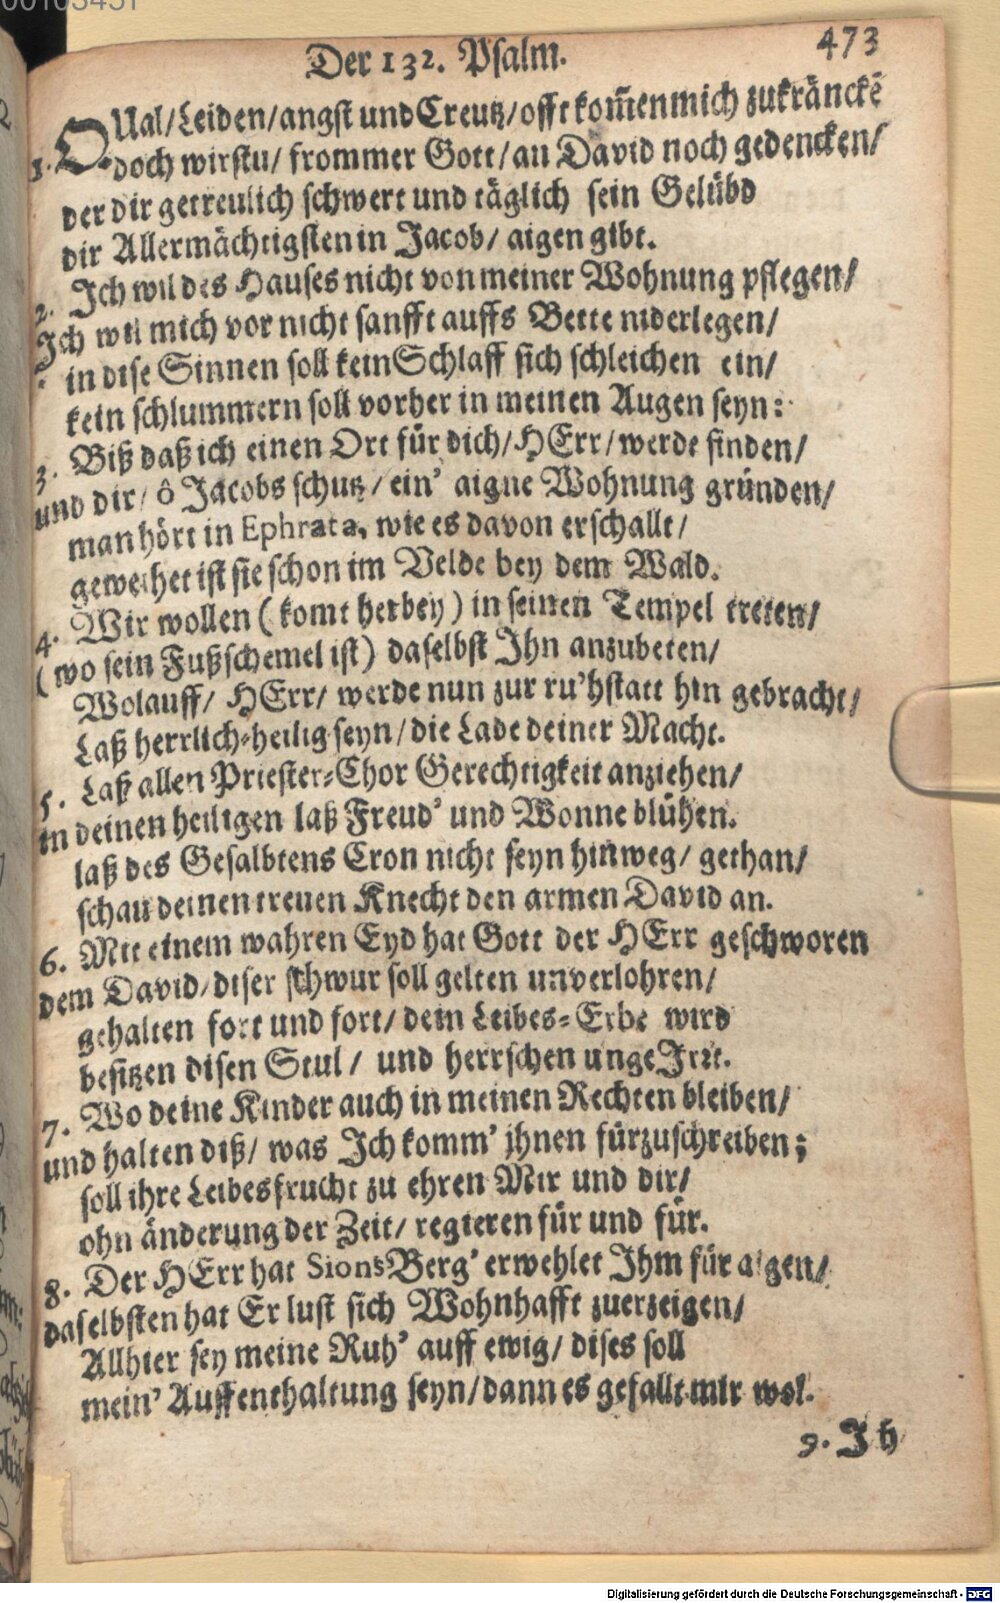 00103451
Der 132. Psalm.
473
1. QUal/Leiden/angst und Creutz/offt kom̃en mich zukränckẽ
doch wirstu/ frommer Gott/an David noch gedencken/
der dir getreulich schwert und täglich sein Gelübd
dir Allermächtigsten in Jacob/ aigen gibt.
2. Ich wil des Hauses nicht von meiner Wohnung pflegen/
Ich wil mich vor nicht sanfft auffs Bette niderlegen/
in dise Sinnen soll kein Schlaff sich schleichen ein/
kein schlummern soll vorher in meinen Augen seyn:
3. Biß daß ich einen Ort für dich/HErr/werde finden/
und dir/ ô Jacobs schutz/ein' aigne Wohnung gründen/
man hört in Ephrata, wie es davon erschallt/
geweihet ist sie schon im Velde bey dem Wald.
4. Wir wollen (komt herbey) in seinen Tempel treten/
(wo sein Fußschemel ist) daselbst Ihn anzubeten/
Wolauff/ HErr/ werde nun zur ru'hstatt hin gebracht/
Laß herrlich-heilig seyn/die Lade deiner Macht.
5. Laß allen Priester-Chor Gerechtigkeit anziehen/
in deinen heiligen laß Freud' und Wonne blühen.
laß des Gesalbtens Cron nicht seyn hinweg/ gethan/
schau deinen treuen Knecht den armen David an.
6. Mit einem wahren Eyd hat Gott der HErr geschworen
dem David/diser schwur soll gelten unverlohren/
gehalten fort und fort/ dein Leibes-Erbe wird
besitzen disen Stul/ und herrschen ungeIrrt.
7. Wo deine Kinder auch in meinen Rechten bleiben/
und halten diß/ was Ich komm' jhnen fürzuschreiben;
soll ihre Leibesfrucht zu ehren Mir und dir/
ohn änderung der Zeit/ regieren für und für.
8. Der HErr hat Sions Berg' erwehlet Ihm für aigen/
daselbsten hat Er lust sich Wohnhafft zuerzeigen/
Allhier sey meine Ruh' auff ewig/ dises soll
mein' Auffenthaltung seyn/dann es gefallt mir wol.
9. Ih
Digitalisierung gefördert durch die Deutsche Forschungsgemeinschaft - DFG